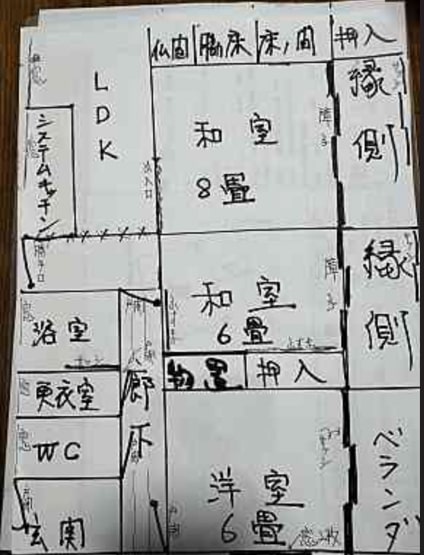 仏間
脇床
床ノ間
押入
LDK
システムキッチン
和室
8畳
障子
縁側
出入口
勝手口
和室
6畳
障子
縁側
浴室
物置
押入
更衣室
廊下
WC
玄関
洋室
6畳
ベランダ